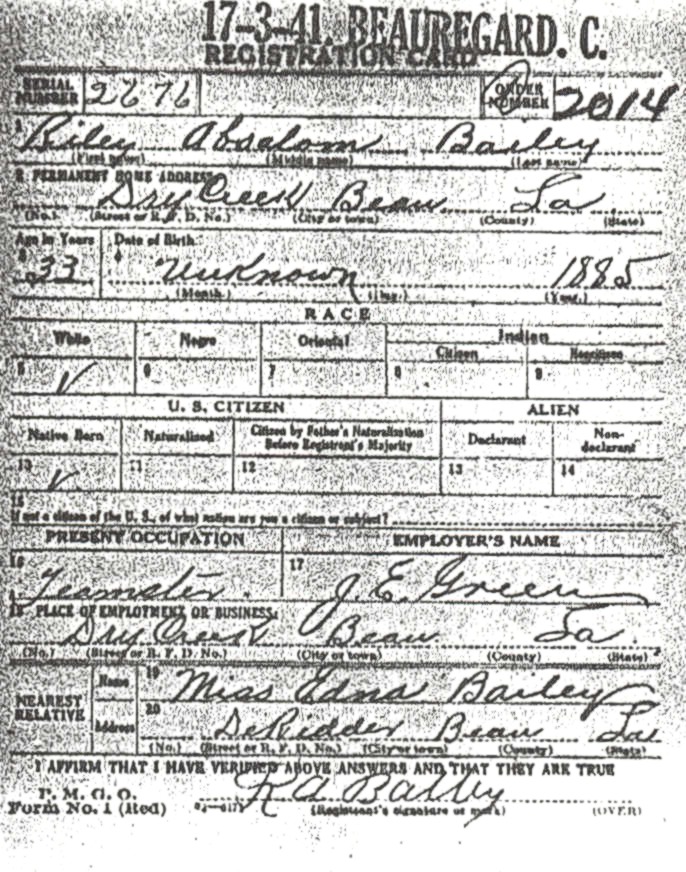 17-3-41. BEAUREGARD. C.
REGISTRATION CARD
SERIAL NUMBER 2676 ORDER NUMBER 2014
1 Riley Absalom Bailey
(First name) (Middle name) (Last name)
2 PERMANENT HOME ADDRESS:
Dry Creek Beau La
(No.) (Street or R. F. D. No.) (City or town) (County) (State)
Age in Years Date of Birth
3 33 4 Unknown 1885
(Month.) (Day.) (Year.)
RACE
White Negro Oriental Indian
Citizen Noncitizen
5 √ 6 7 8 9
U. S. CITIZEN ALIEN
Native Born Naturalized Citizen by Father's Naturalization Before Registrant's Majority Declarant Non-declarant
10 √ 11 12 13 14
15
If not a citizen of the U. S., of what nation are you a citizen or subject?
PRESENT OCCUPATION EMPLOYER'S NAME
16 Teamster. 17 J. E. Green
18 PLACE OF EMPLOYMENT OR BUSINESS:
Dry Creek Beau La.
(No.) (Street or R. F. D. No.) (City or town) (County) (State)
NEAREST RELATIVE Name 19 Miss Edna Bailey
Address 20 DeRidder Beau La
(No.) (Street or R. F. D. No.) (City or town) (County) (State)
I AFFIRM THAT I HAVE VERIFIED ABOVE ANSWERS AND THAT THEY ARE TRUE
P. M. G. O.
Form No. 1 (Red) R A Bailey
(Registrant's signature or mark) (OVER)